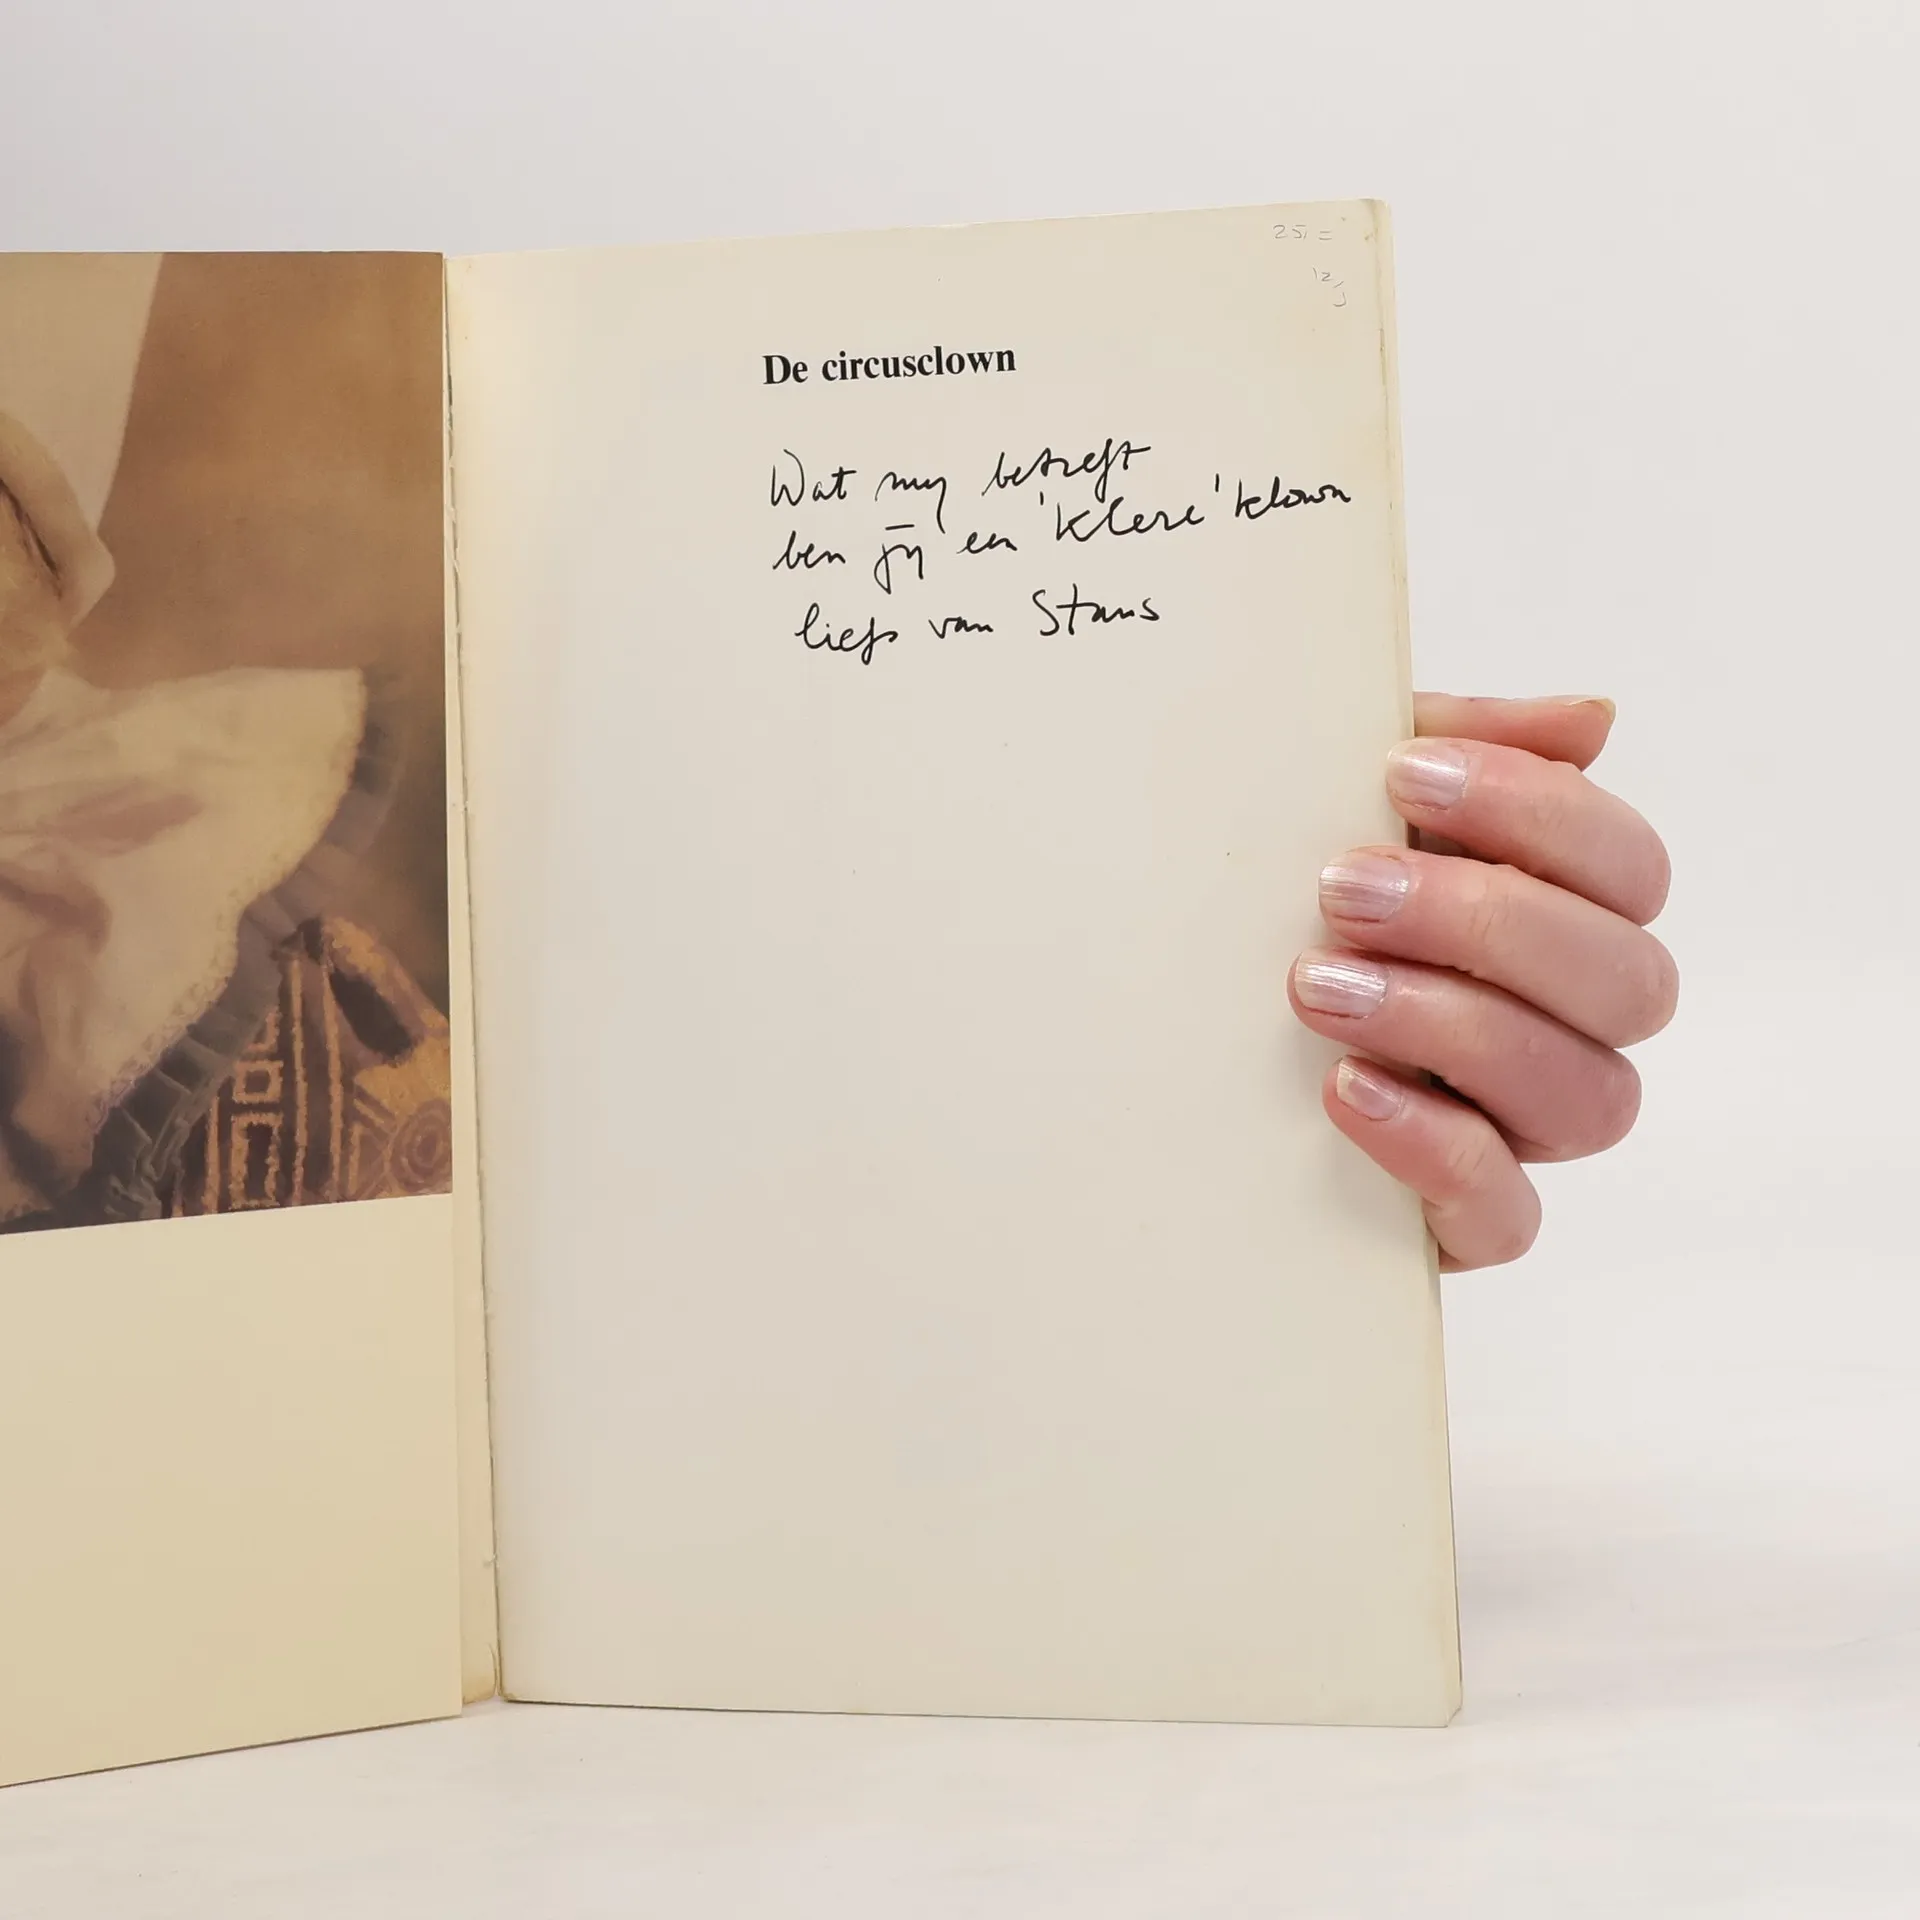 25,=
12,
De circusclown
Wat my betreft
ben jy een 'klere' klown
liefs van Stans